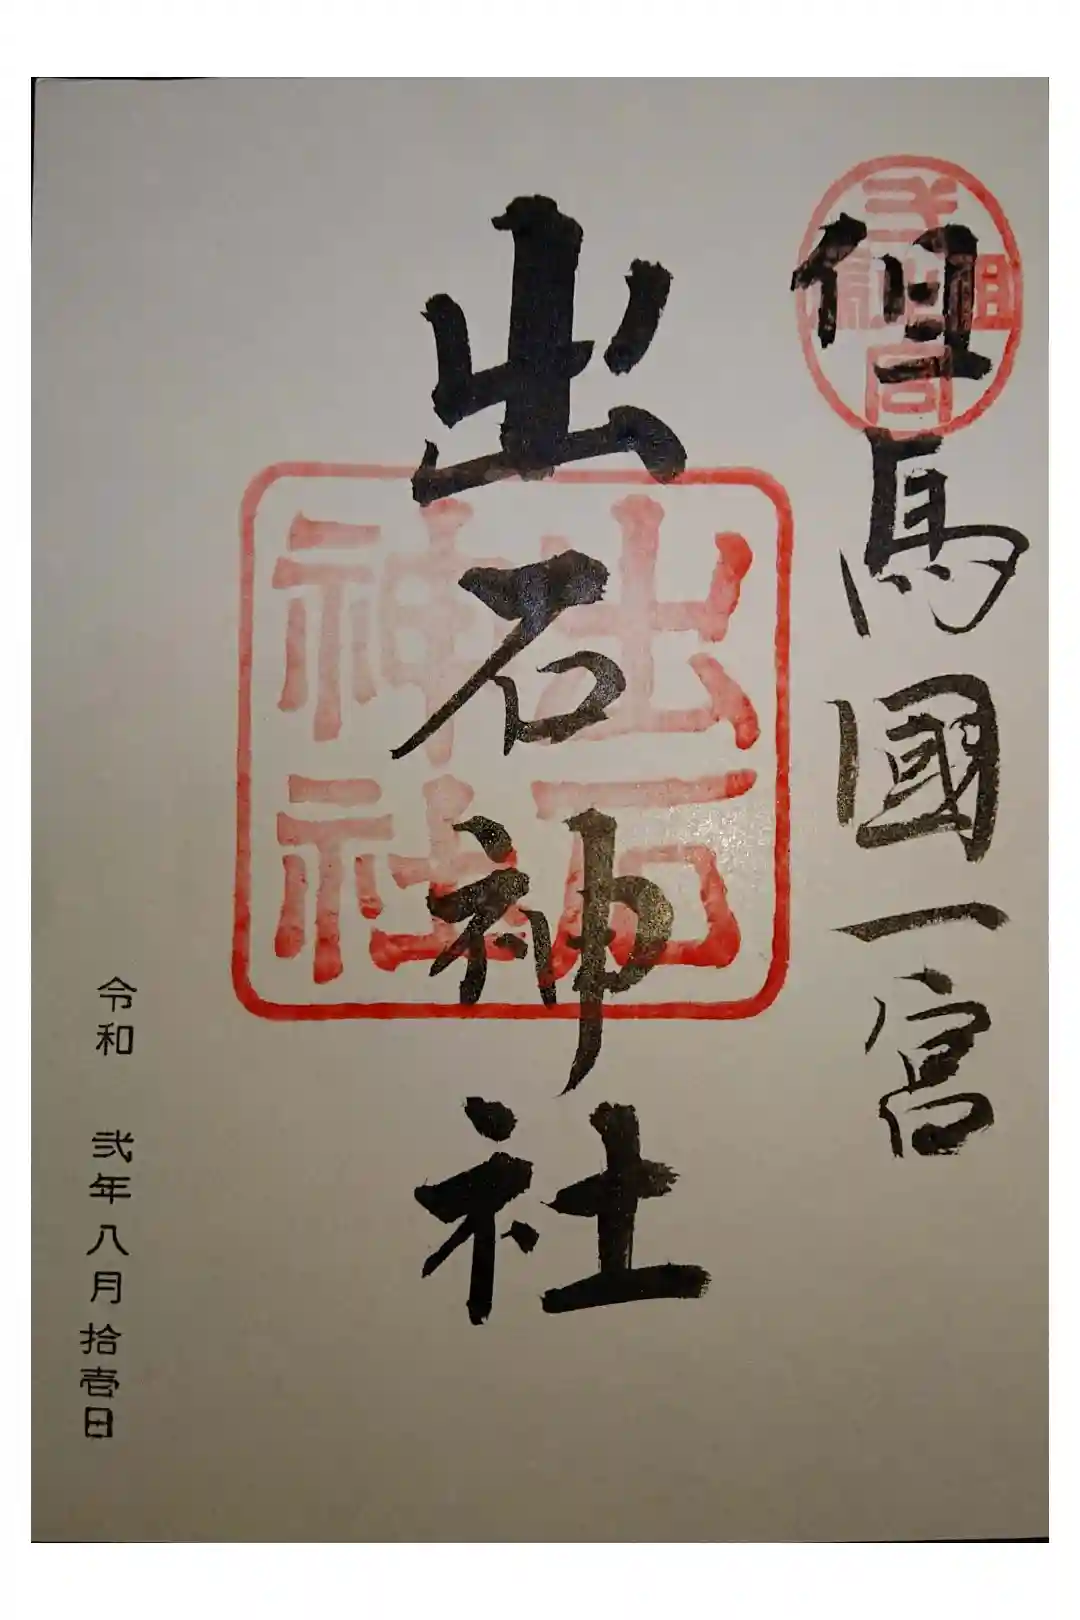 但馬國一宮
出石神社
出石
神社
令和 弐年八月拾壱日